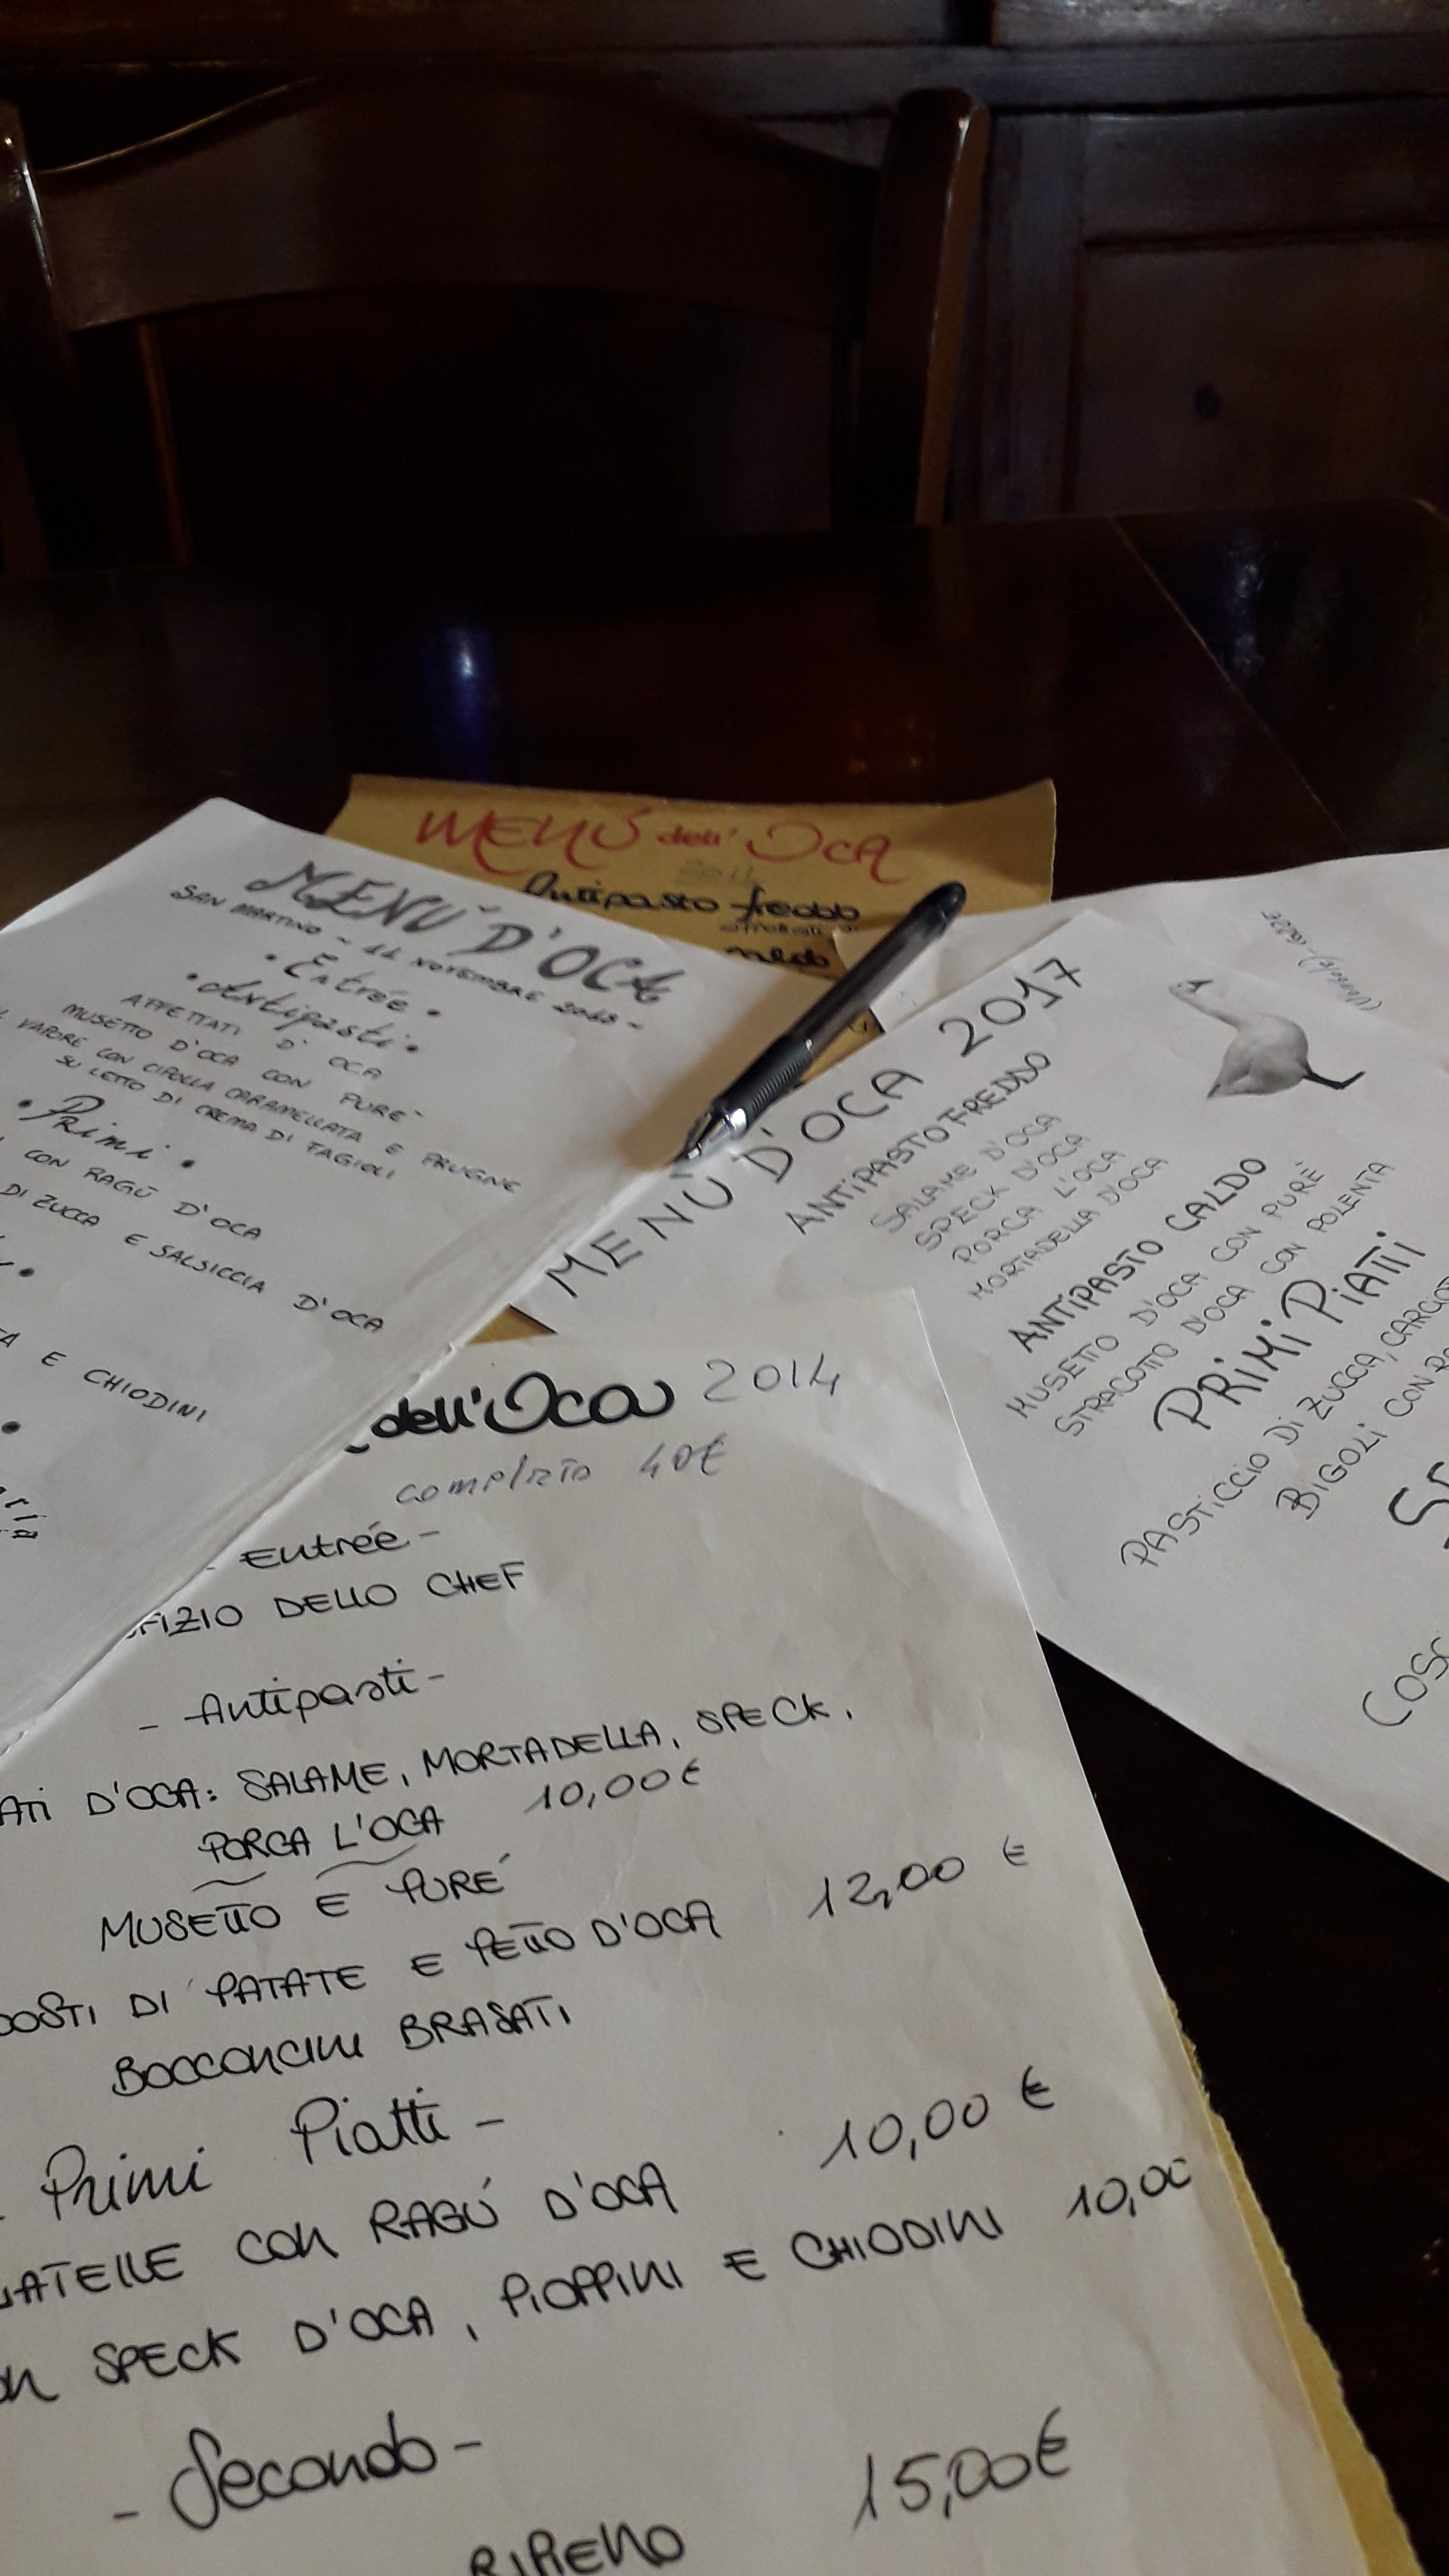 MENÚ dell'Oca
Antipasto freddo
MENU' D'OCA
SAN MARTINO - 11 NOVEMBRE
• Entrée •
• Antipasti •
AFFETTATI D'OCA
MUSETTO D'OCA CON PURE'
VAPORE CON CIPOLLA CARAMELLATA E PRUGNE
SU LETTO DI CREMA DI FAGIOLI
• Primi •
CON RAGÙ D'OCA
DI ZUCCA E SALSICCIA D'OCA
E CHIODINI
MENÙ D'OCA 2017
ANTIPASTO FREDDO
SALAME D'OCA
SPECK D'OCA
PORCA L'OCA
MORTADELLA D'OCA
ANTIPASTO CALDO
MUSETTO D'OCA CON PURÈ
STRACOTTO D'OCA CON POLENTA
PRIMI PIATTI
PASTICCIO DI ZUCCA,
BIGOLI CON
dell'Oca 2014
completo 40€
- Entrée -
FIZIO DELLO CHEF
- Antipasti -
ATI D'OCA: SALAME, MORTADELLA, SPECK,
PORCA L'OCA 10,00€
MUSETTO E PURÉ
OSTI DI PATATE E PETTO D'OCA 12,00 €
BOCCONCINI BRASATI
Primi Piatti -
LATELLE CON RAGÚ D'OCA 10,00 €
ON SPECK D'OCA, PIOPPINI E CHIODINI 10,00
- Secondo -
RIPIENO 15,00€